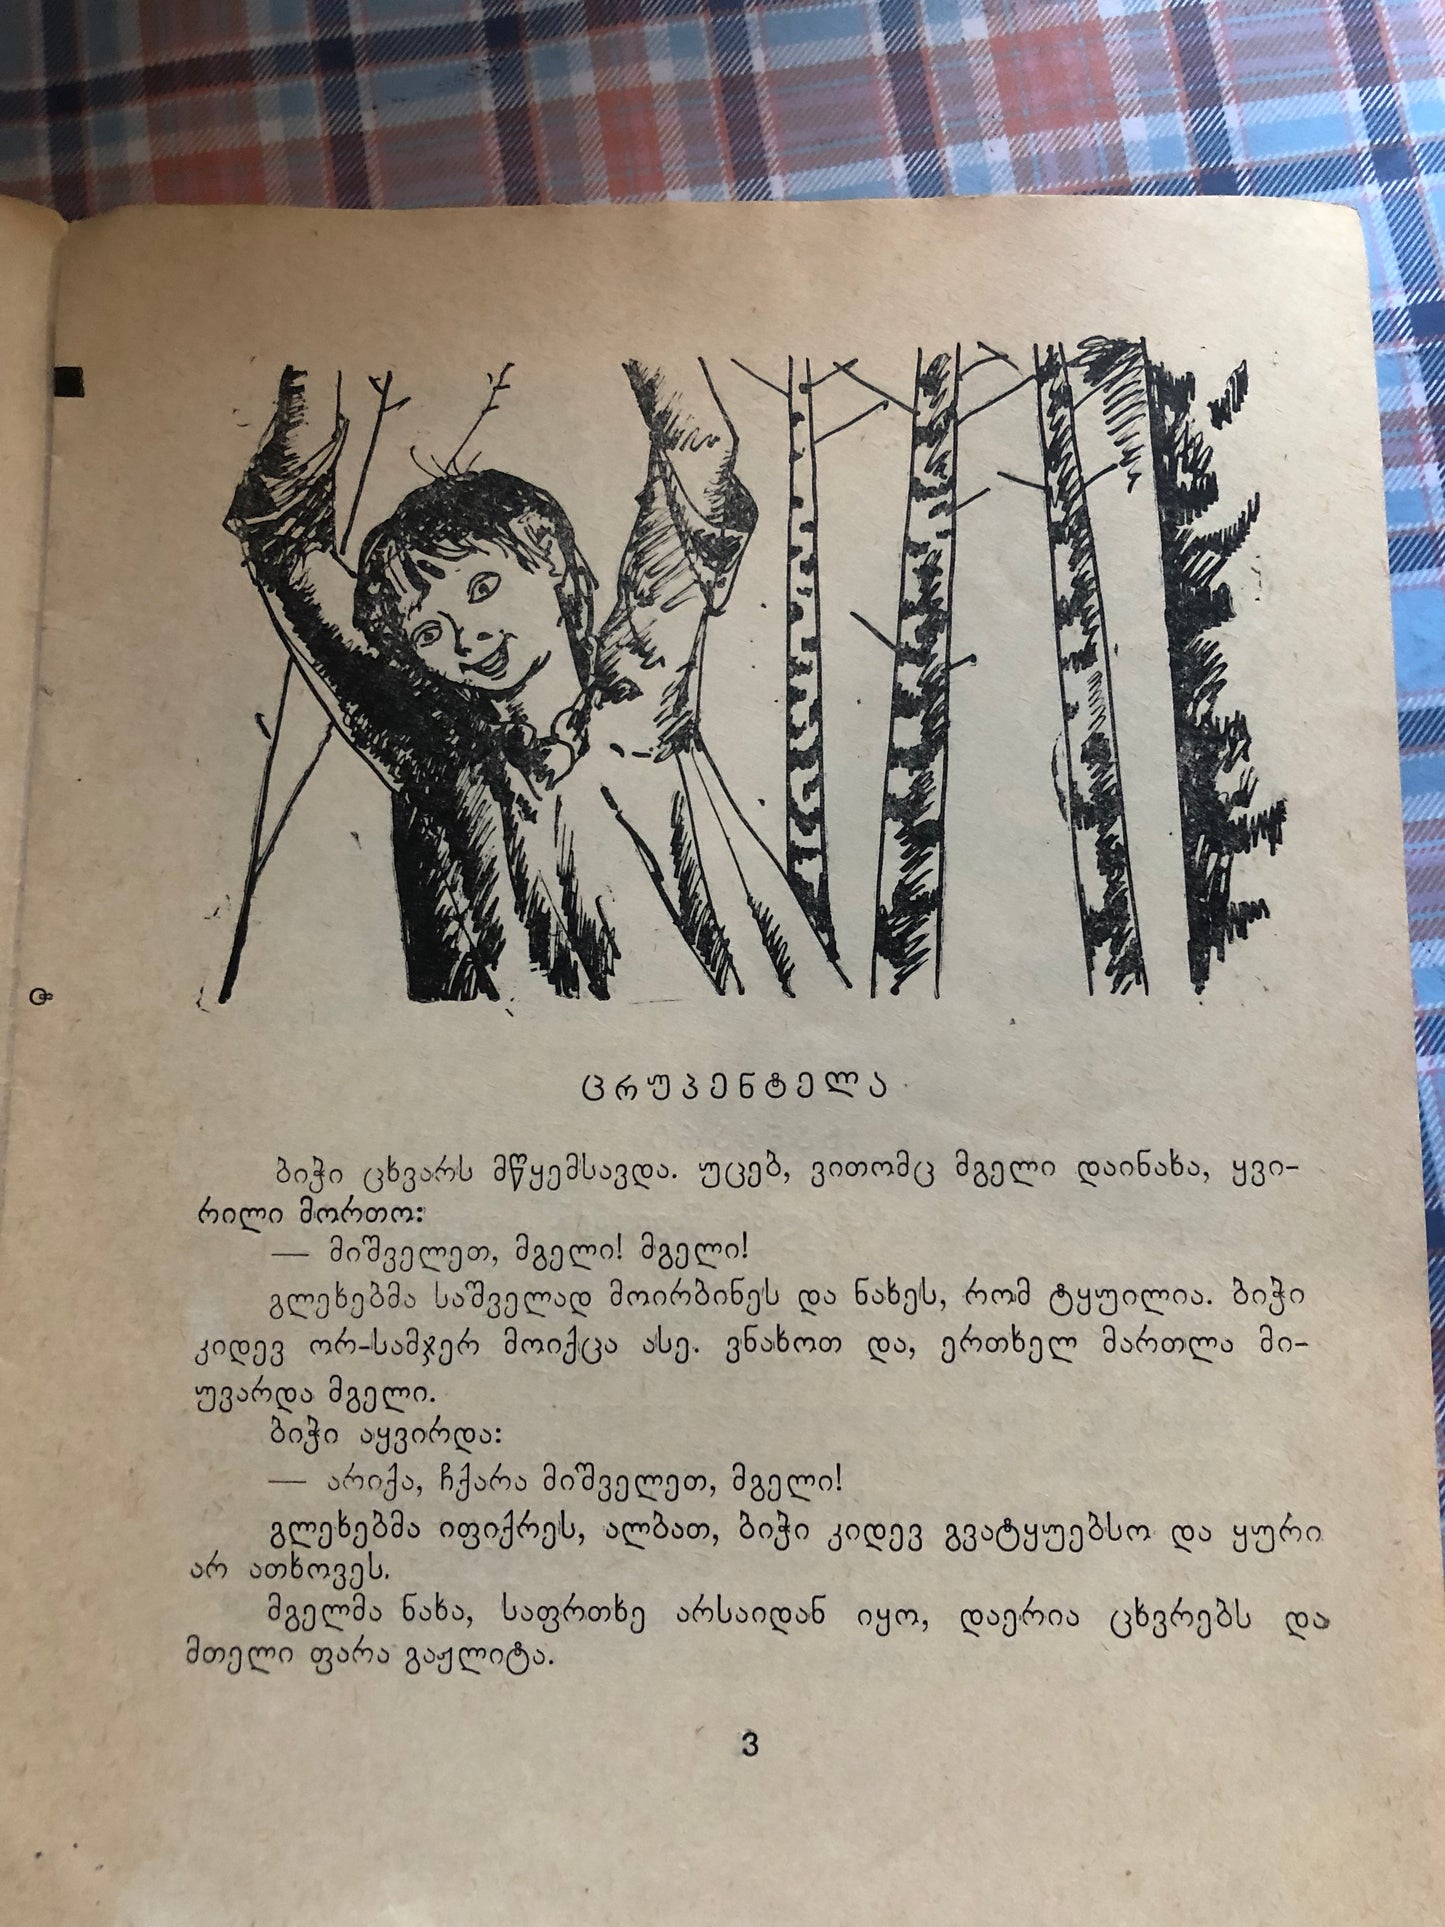 ცრუპენტელა
ბიჭი ცხვარს მწყემსავდა. უცებ, ვითომც მგელი დაინახა, ყვი-
რილი მორთო:
— მიშველეთ, მგელი! მგელი!
გლეხებმა საშველად მოირბინეს და ნახეს, რომ ტყუილია. ბიჭი
კიდევ ორ-სამჯერ მოიქცა ასე. ვნახოთ და, ერთხელ მართლა მი-
უვარდა მგელი.
ბიჭი აყვირდა:
— არიქა, ჩქარა მიშველეთ, მგელი!
გლეხებმა იფიქრეს, ალბათ, ბიჭი კიდევ გვატყუებსო და ყური
არ ათხოვეს.
მგელმა ნახა, საფრთხე არსაიდან იყო, დაერია ცხვრებს და
მთელი ფარა გაჟლიტა.
3